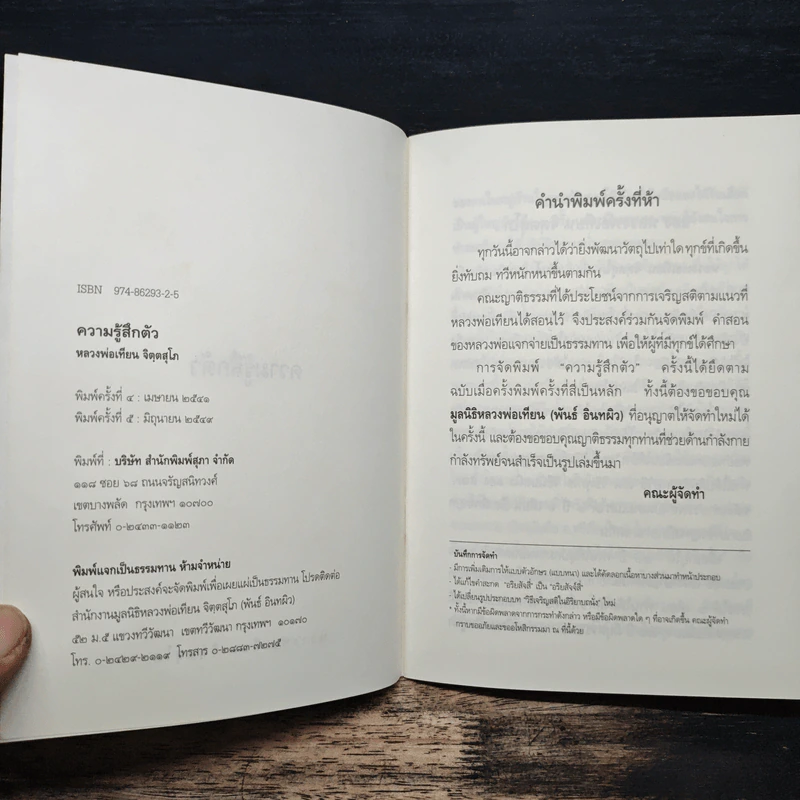 ISBN 974-86293-2-5
ความรู้สึกตัว
หลวงพ่อเทียน จิตฺตสุโภ
พิมพ์ครั้งที่ ๔ : เมษายน ๒๕๔๑
พิมพ์ครั้งที่ ๕ : มิถุนายน ๒๕๔๙
พิมพ์ที่ : บริษัท สำนักพิมพ์สุภา จำกัด
๑๑๘ ซอย ๖๘ ถนนจรัญสนิทวงศ์
เขตบางพลัด กรุงเทพฯ ๑๐๗๐๐
โทรศัพท์ ๐-๒๔๓๓-๑๑๒๓
พิมพ์แจกเป็นธรรมทาน ห้ามจำหน่าย
ผู้สนใจ หรือประสงค์จะจัดพิมพ์เพื่อเผยแผ่เป็นธรรมทาน โปรดติดต่อ
สำนักงานมูลนิธิหลวงพ่อเทียน จิตฺตสุโภ (พันธ์ อินทผิว)
๕๒ ม.๕ แขวงทวีวัฒนา เขตทวีวัฒนา กรุงเทพฯ ๑๐๑๗๐
โทร. ๐-๒๔๒๙-๒๑๑๙ โทรสาร ๐-๒๘๘๓-๗๒๗๕
คำนำพิมพ์ครั้งที่ห้า
ทุกวันนี้อาจกล่าวได้ว่ายิ่งพัฒนาวัตถุไปเท่าใด ทุกข์ที่เกิดขึ้น
ยิ่งทับถม ทวีหนักหนาขึ้นตามกัน
คณะญาติธรรมที่ได้ประโยชน์จากการเจริญสติตามแนวที่
หลวงพ่อเทียนได้สอนไว้ จึงประสงค์ร่วมกันจัดพิมพ์ คำสอน
ของหลวงพ่อแจกจ่ายเป็นธรรมทาน เพื่อให้ผู้ที่มีทุกข์ได้ศึกษา
การจัดพิมพ์ “ความรู้สึกตัว” ครั้งนี้ได้ยึดตาม
ฉบับเมื่อครั้งพิมพ์ครั้งที่สี่เป็นหลัก ทั้งนี้ต้องขอขอบคุณ
มูลนิธิหลวงพ่อเทียน (พันธ์ อินทผิว) ที่อนุญาตให้จัดทำใหม่ได้
ในครั้งนี้ และต้องขอขอบคุณญาติธรรมทุกท่านที่ช่วยด้านกำลังกาย
กำลังทรัพย์จนสำเร็จเป็นรูปเล่มขึ้นมา
คณะผู้จัดทำ
บันทึกการจัดทำ
- มีการเพิ่มเติมการให้แบบตัวอักษร (แบบหนา) และได้คัดลอกเนื้อหาบางส่วนมาทำหน้าประกอบ
- ได้แก้ไขคำสะกด "อริยสัจสี่" เป็น "อริยสัจจ์สี่"
- ได้เปลี่ยนรูปประกอบบท "วิธีเจริญสติในอิริยาบถนั่ง" ใหม่
* ทั้งนี้หากมีข้อผิดพลาดจากการกระทำดังกล่าว หรือมีข้อผิดพลาดใด ๆ ที่อาจเกิดขึ้น คณะผู้จัดทำ
กราบขออภัยและขออโหสิกรรมมา ณ ที่นี้ด้วย